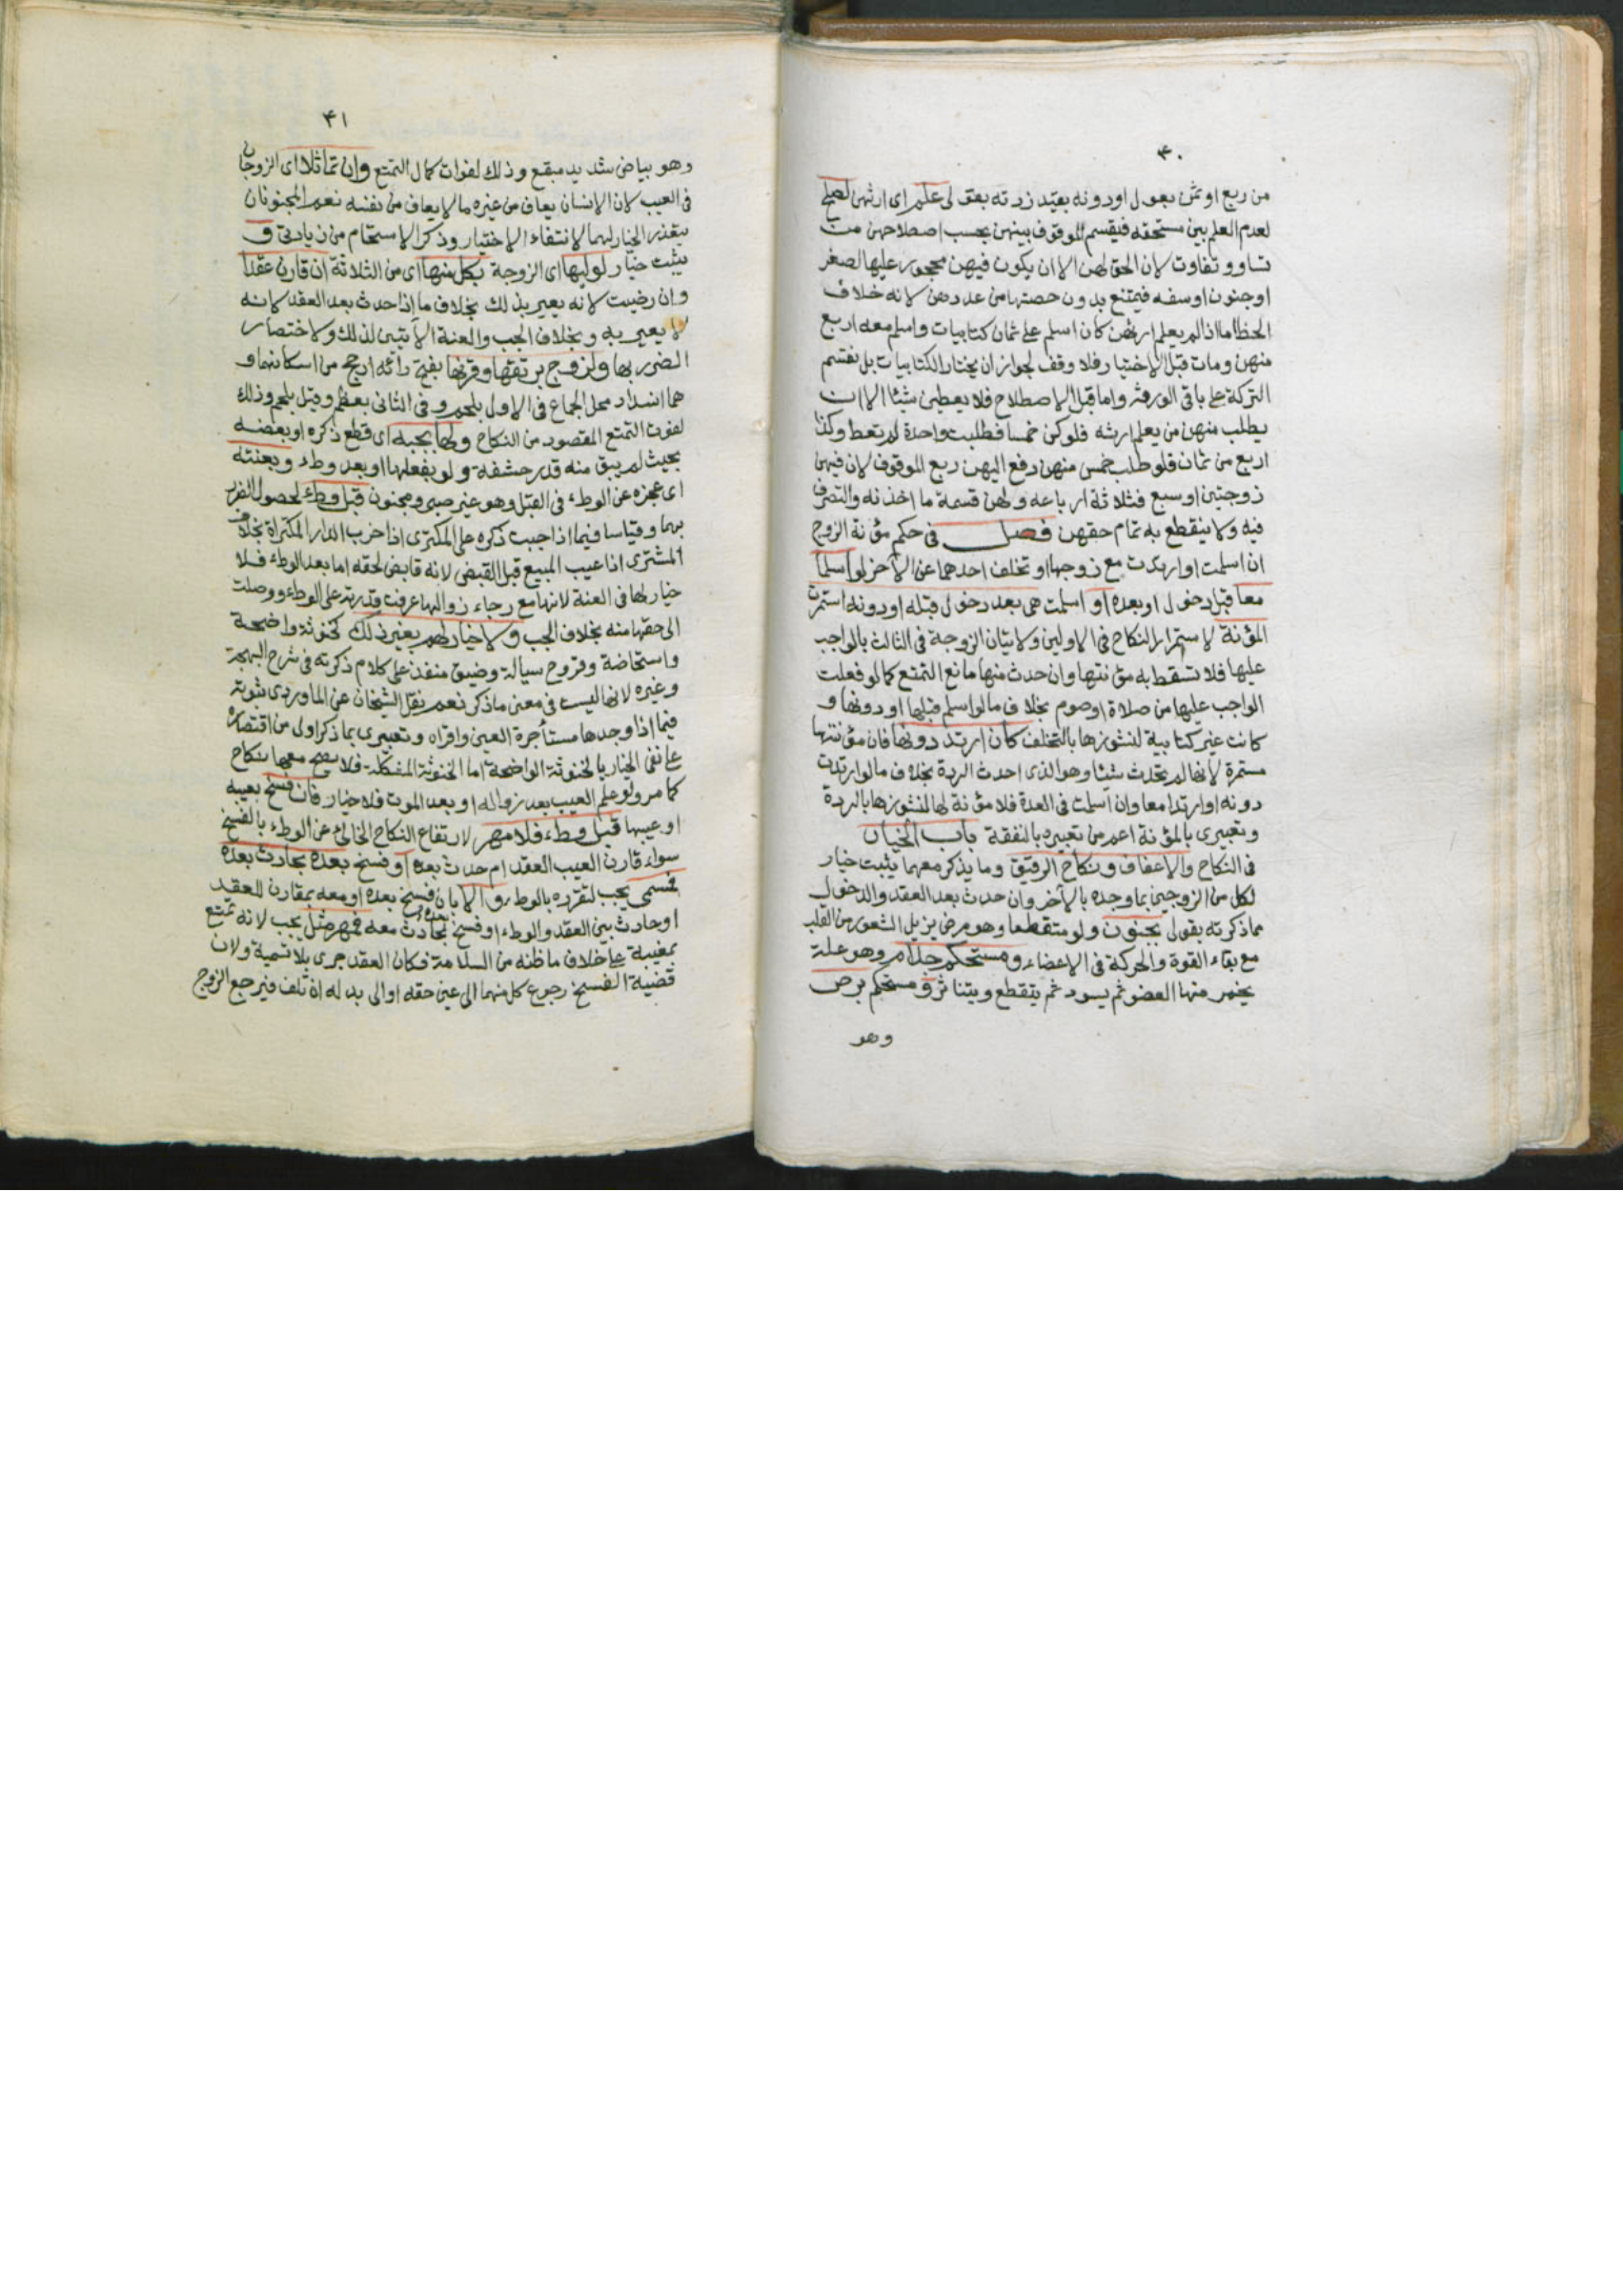 ۴۰
من ربع او ثمن بعول او دونه بقيد زدته بقولى علم اى ارثهن لصلح
لعدم العلم بعين مستحقه فيقسم الموقوف بينهن بحسب اصطلاحهن من
تساو وتفاوت لان الحق لهن الا ان يكون فيهن محجور عليها لصغر
او جنون او سفه فيمتنع بدون حصتها من عددهن لانه خلاف
الحظ اما اذا لم يعلم ارثهن كان اسلم على ثمان كتابيات واسلم معه اربع
منهن ومات قبل الاختيار فلا وقف لجواز ان يختار الكتابيات بل تقسم
التركة على باقى الورثة واما قبل الاصطلاح فلا يعطين شيئا الا ان
يطلب منهن من يعلم ارثه فلو كن خمسا فطلبت واحدة لم تعط وكذا
اربع من ثمان فلو طلب خمس منهن دفع اليهن ربع الموقوف لان فيهن
زوجتين او سبع فثلاثة ارباعه ولهن قسمة ما اخذنه والتصرف
فيه ولا ينقطع به تمام حقهن فصل فى حكم مؤنة الزوج
ان اسلمت او ارتدت مع زوجها او تخلف احدهما عن الآخر لو اسلما
معا قبل دخول او بعده او اسلمت هى بعد دخول قبله او دونه استمرت
المؤنة لاستمرار النكاح فى الاولين ولاتيان الزوجة فى الثالث بالواجب
عليها فلا تسقط به مؤنتها وان حدث منها مانع التمتع كما لو فعلت
الواجب عليها من صلاة او صوم بخلاف ما لو اسلم قبلها او دونها و
كانت غير كتابية لنشوزها بالتخلف كان ارتد دونها فان مؤنتها
مستمرة لانها لم تحدث شيئا وهو الذى احدث الردة بخلاف ما لو ارتدت
دونه او ارتدا معا وان اسلمت فى العدة فلا مؤنة لها لنشوزها بالردة
وتعبيرى بالمؤنة اعم من تعبيره بالنفقة باب الخيار
فى النكاح والاعفاف ونكاح الرقيق وما يذكر معهما يثبت خيار
لكل من الزوجين بما وجده بالآخر وان حدث بعد العقد والدخول
مما ذكرته بقولى بجنون ولو متقطعا وهو مرض يزيل الشعور من القلب
مع بقاء القوة والحركة فى الاعضاء ومستحكم جذام وهو علة
يحمر منها العضو ثم يسود ثم يتقطع ويتناثر ومستحكم برص
وهو
۴۱
وهو بياض شديد مبقع وذلك لفوات كمال التمتع وان تماثلا اى الزوجان
فى العيب لان الانسان يعاف من غيره ما لا يعاف من نفسه نعم المجنونان
يتعذر الخيار لهما لانتفاء الاختيار وذكر الاستحكام من زيادتى و
يثبت خيار لوليها اى الزوجة بكل منها اى من الثلاثة ان قارن عقدا
وان رضيت لانه يعير بذلك بخلاف ما اذا حدث بعد العقد لانه
لا يعير به وبخلاف الجب والعنة الآتيين لذلك ولاختصار
الضرر بها ولزوج برتقها وقرنها بفتح رائه ارجح من اسكانها و
هما انسداد محل الجماع فى الاول بلحم وفى الثانى بعظم وقيل بلحم وذلك
لفوت التمتع المقصود من النكاح ولها بجبه اى قطع ذكره او بعضه
بحيث لم يبق منه قدر حشفة ولو بفعلها او بعد وطء وبعنته
اى عجزه عن الوطء فى القبل وهو غير صبى ومجنون قبل وطء لحصول الضرر
بهما وقياسا فيما اذا جبت ذكره على المكترى اذا خرب الدار المكتراة بخلاف
المشترى اذا عيب المبيع قبل القبض لانه قابض لحقه اما بعد الوطء فلا
خيار لها فى العنة لانها مع رجاء زوالها عرفت قدرته على الوطء ووصلت
الى حقها منه بخلاف الجب ولا خيار لهم بغير ذلك كخنوثة واضحة
واستحاضة وقروح سيالة وضيق منفذ على كلام ذكرته فى شرح البهجة
وغيره لانها ليست فى معنى ما ذكر نعم نقل الشيخان عن الماوردى ثبوته
فيما اذا وجدها مستأجرة العين واقراه وتعبيرى بما ذكر اولى من اقتصاره
على نفى الخيار بالخنوثة الواضحة اما الخنوثة المشكلة فلا يصح معها نكاح
كما مر ولو علم العيب بعد زواله او بعد الموت فلا خيار فان فسخ بعيبه
او عيبها قبل وطء فلا مهر لارتفاع النكاح الخالى عن الوطء بالفسخ
سواء قارن العيب العقد ام حدث بعده او فسخ بعده بحادث بعده
فسمى يجب لتقرره بالوطء والا بان فسخ بعده او معه بمقارن للعقد
او حادث بين العقد والوطء او فسخ بحادث معه فمهر مثل يجب لانه تمتع
بمعيبة على خلاف ما ظنه من السلامة فكان العقد جرى بلا تسمية ولان
قضية الفسخ رجوع كل منهما الى عين حقه او الى بدله ان تلف فيرجع الزوج